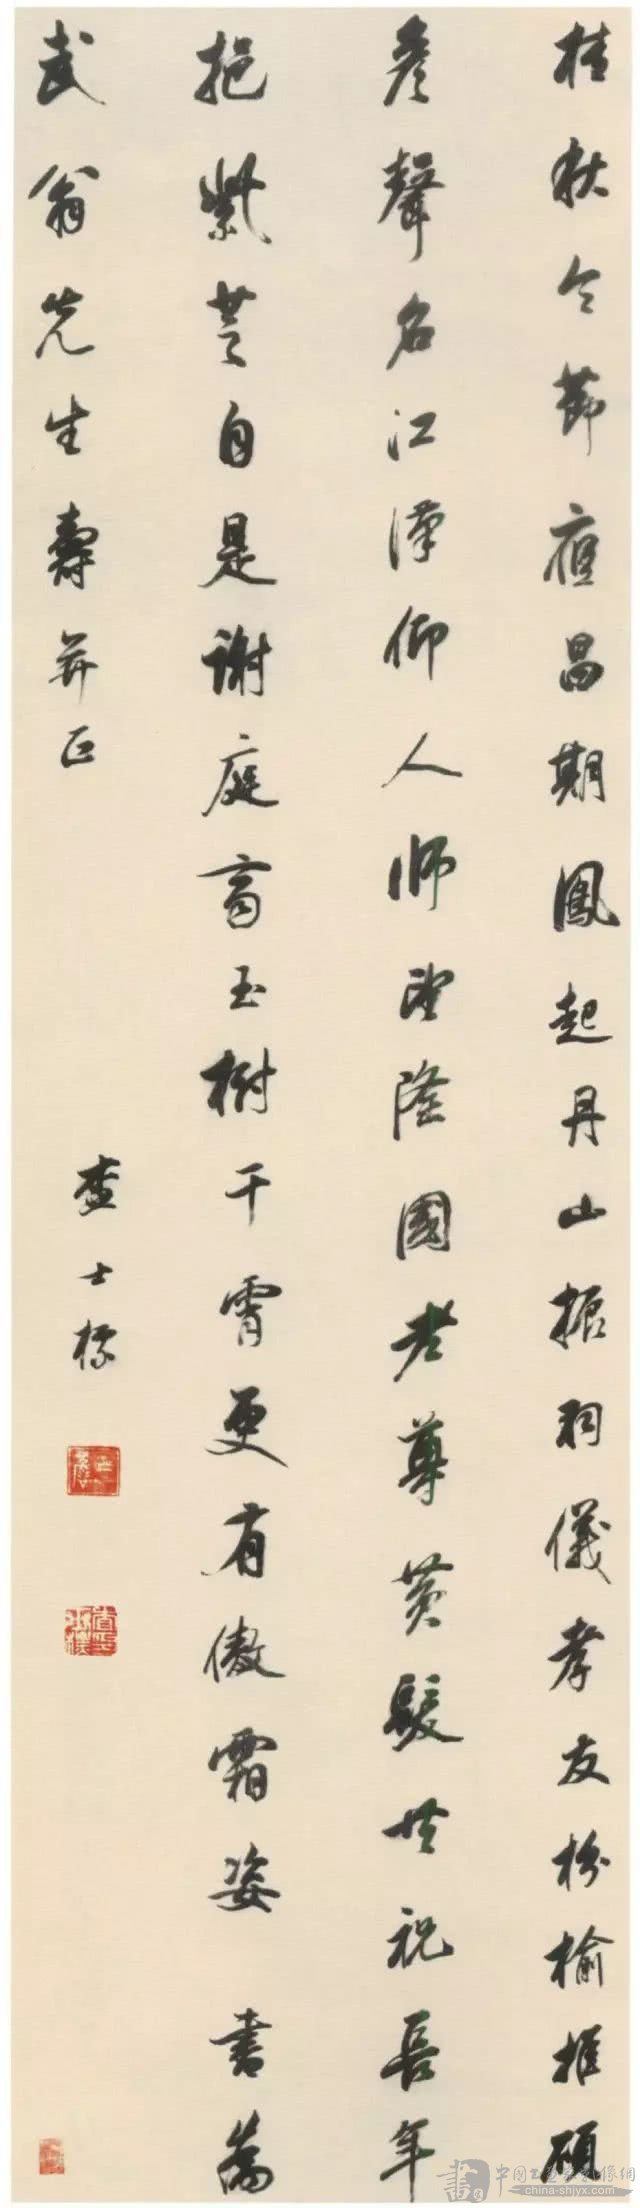 桂秋令節應昌期鳳起丹山振羽儀孝友枌榆推碩
彥聲名江漢仰人師望隆國老尊黃髮世祝長年
挹紫芝自是謝庭育玉樹干霄更有傲霜姿 書為
武翁先生壽并正
查士標
中国书画家影像網
china-shjyx.com